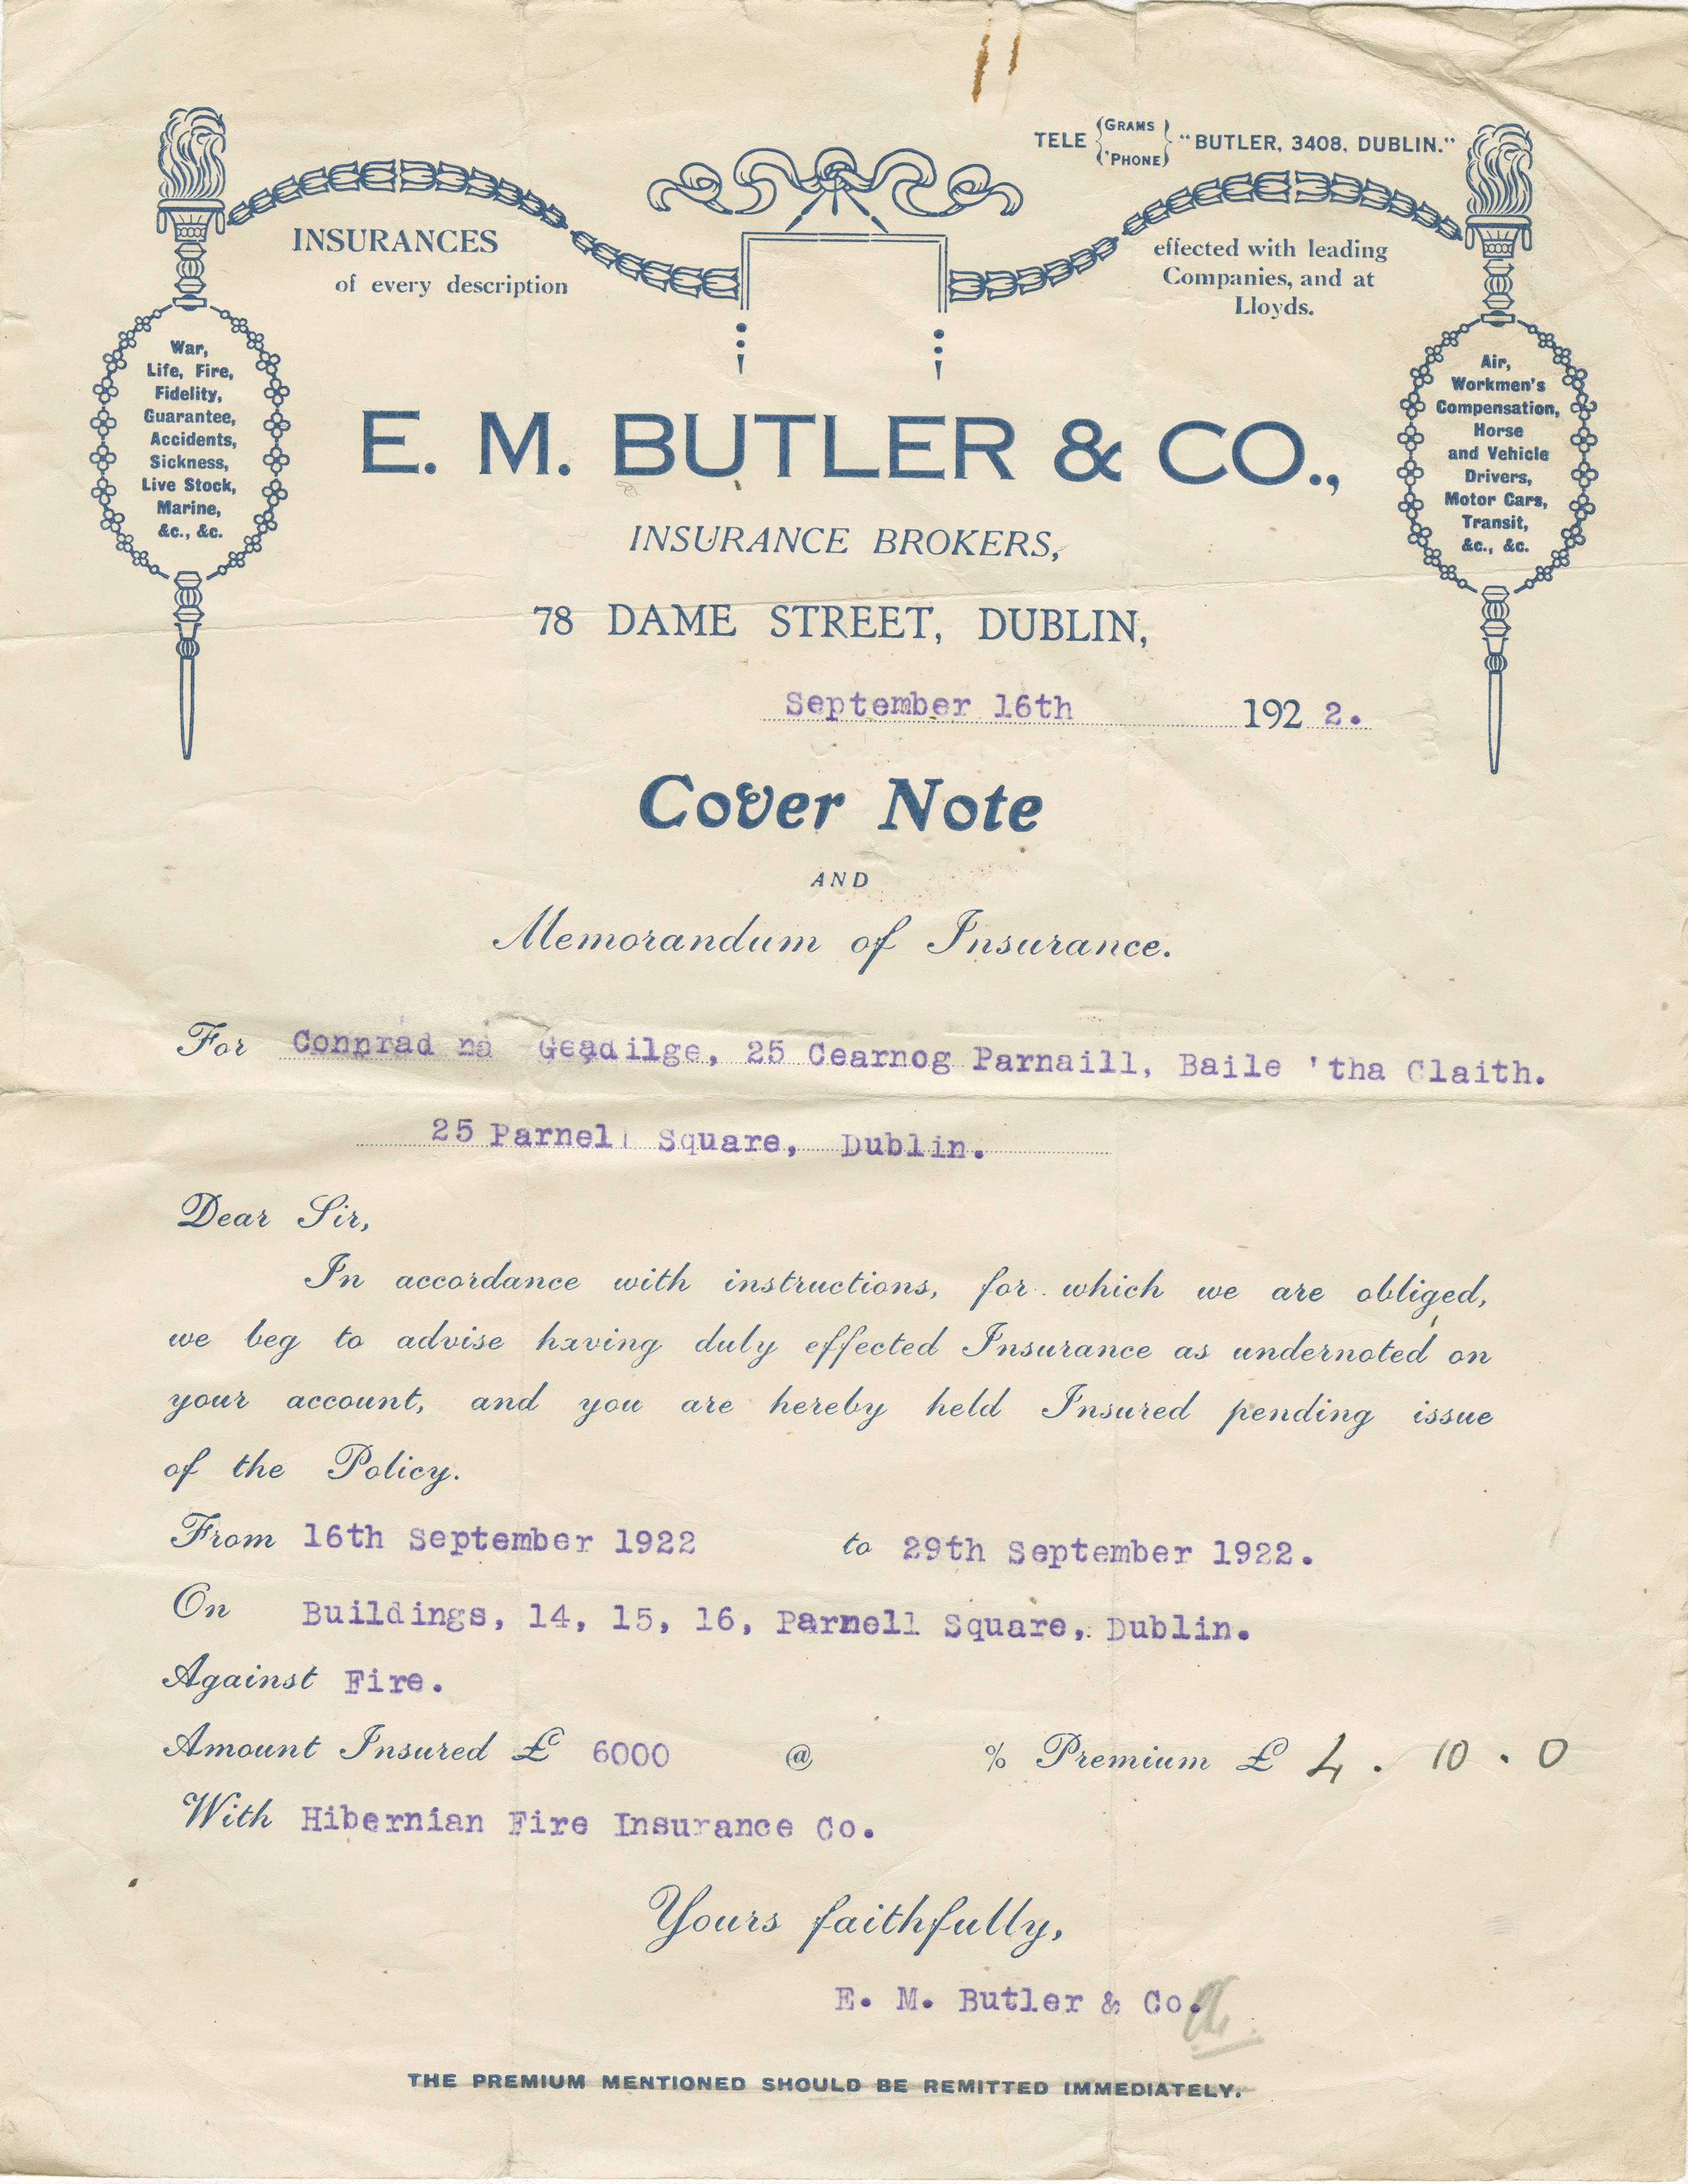 TELE { GRAMS 'PHONE } "BUTLER, 3408, DUBLIN."
INSURANCES
of every description
effected with leading
Companies, and at
Lloyds.
War,
Life, Fire,
Fidelity,
Guarantee,
Accidents,
Sickness,
Live Stock,
Marine,
&c., &c.
Air,
Workmen's
Compensation,
Horse
and Vehicle
Drivers,
Motor Cars,
Transit,
&c., &c.
E. M. BUTLER & CO.,
INSURANCE BROKERS,
78 DAME STREET, DUBLIN,
September 16th 1922.
Cover Note
AND
Memorandum of Insurance.
For Connrad na Geadilge, 25 Cearnog Parnaill, Baile 'tha Claith.
25 Parnell Square, Dublin.
Dear Sir,
In accordance with instructions, for which we are obliged,
we beg to advise having duly effected Insurance as undernoted on
your account, and you are hereby held Insured pending issue
of the Policy.
From 16th September 1922 to 29th September 1922.
On Buildings, 14, 15, 16, Parnell Square, Dublin.
Against Fire.
Amount Insured £ 6000 @ % Premium £ 4 . 10 . 0
With Hibernian Fire Insurance Co.
Yours faithfully,
E. M. Butler & Co.
THE PREMIUM MENTIONED SHOULD BE REMITTED IMMEDIATELY.